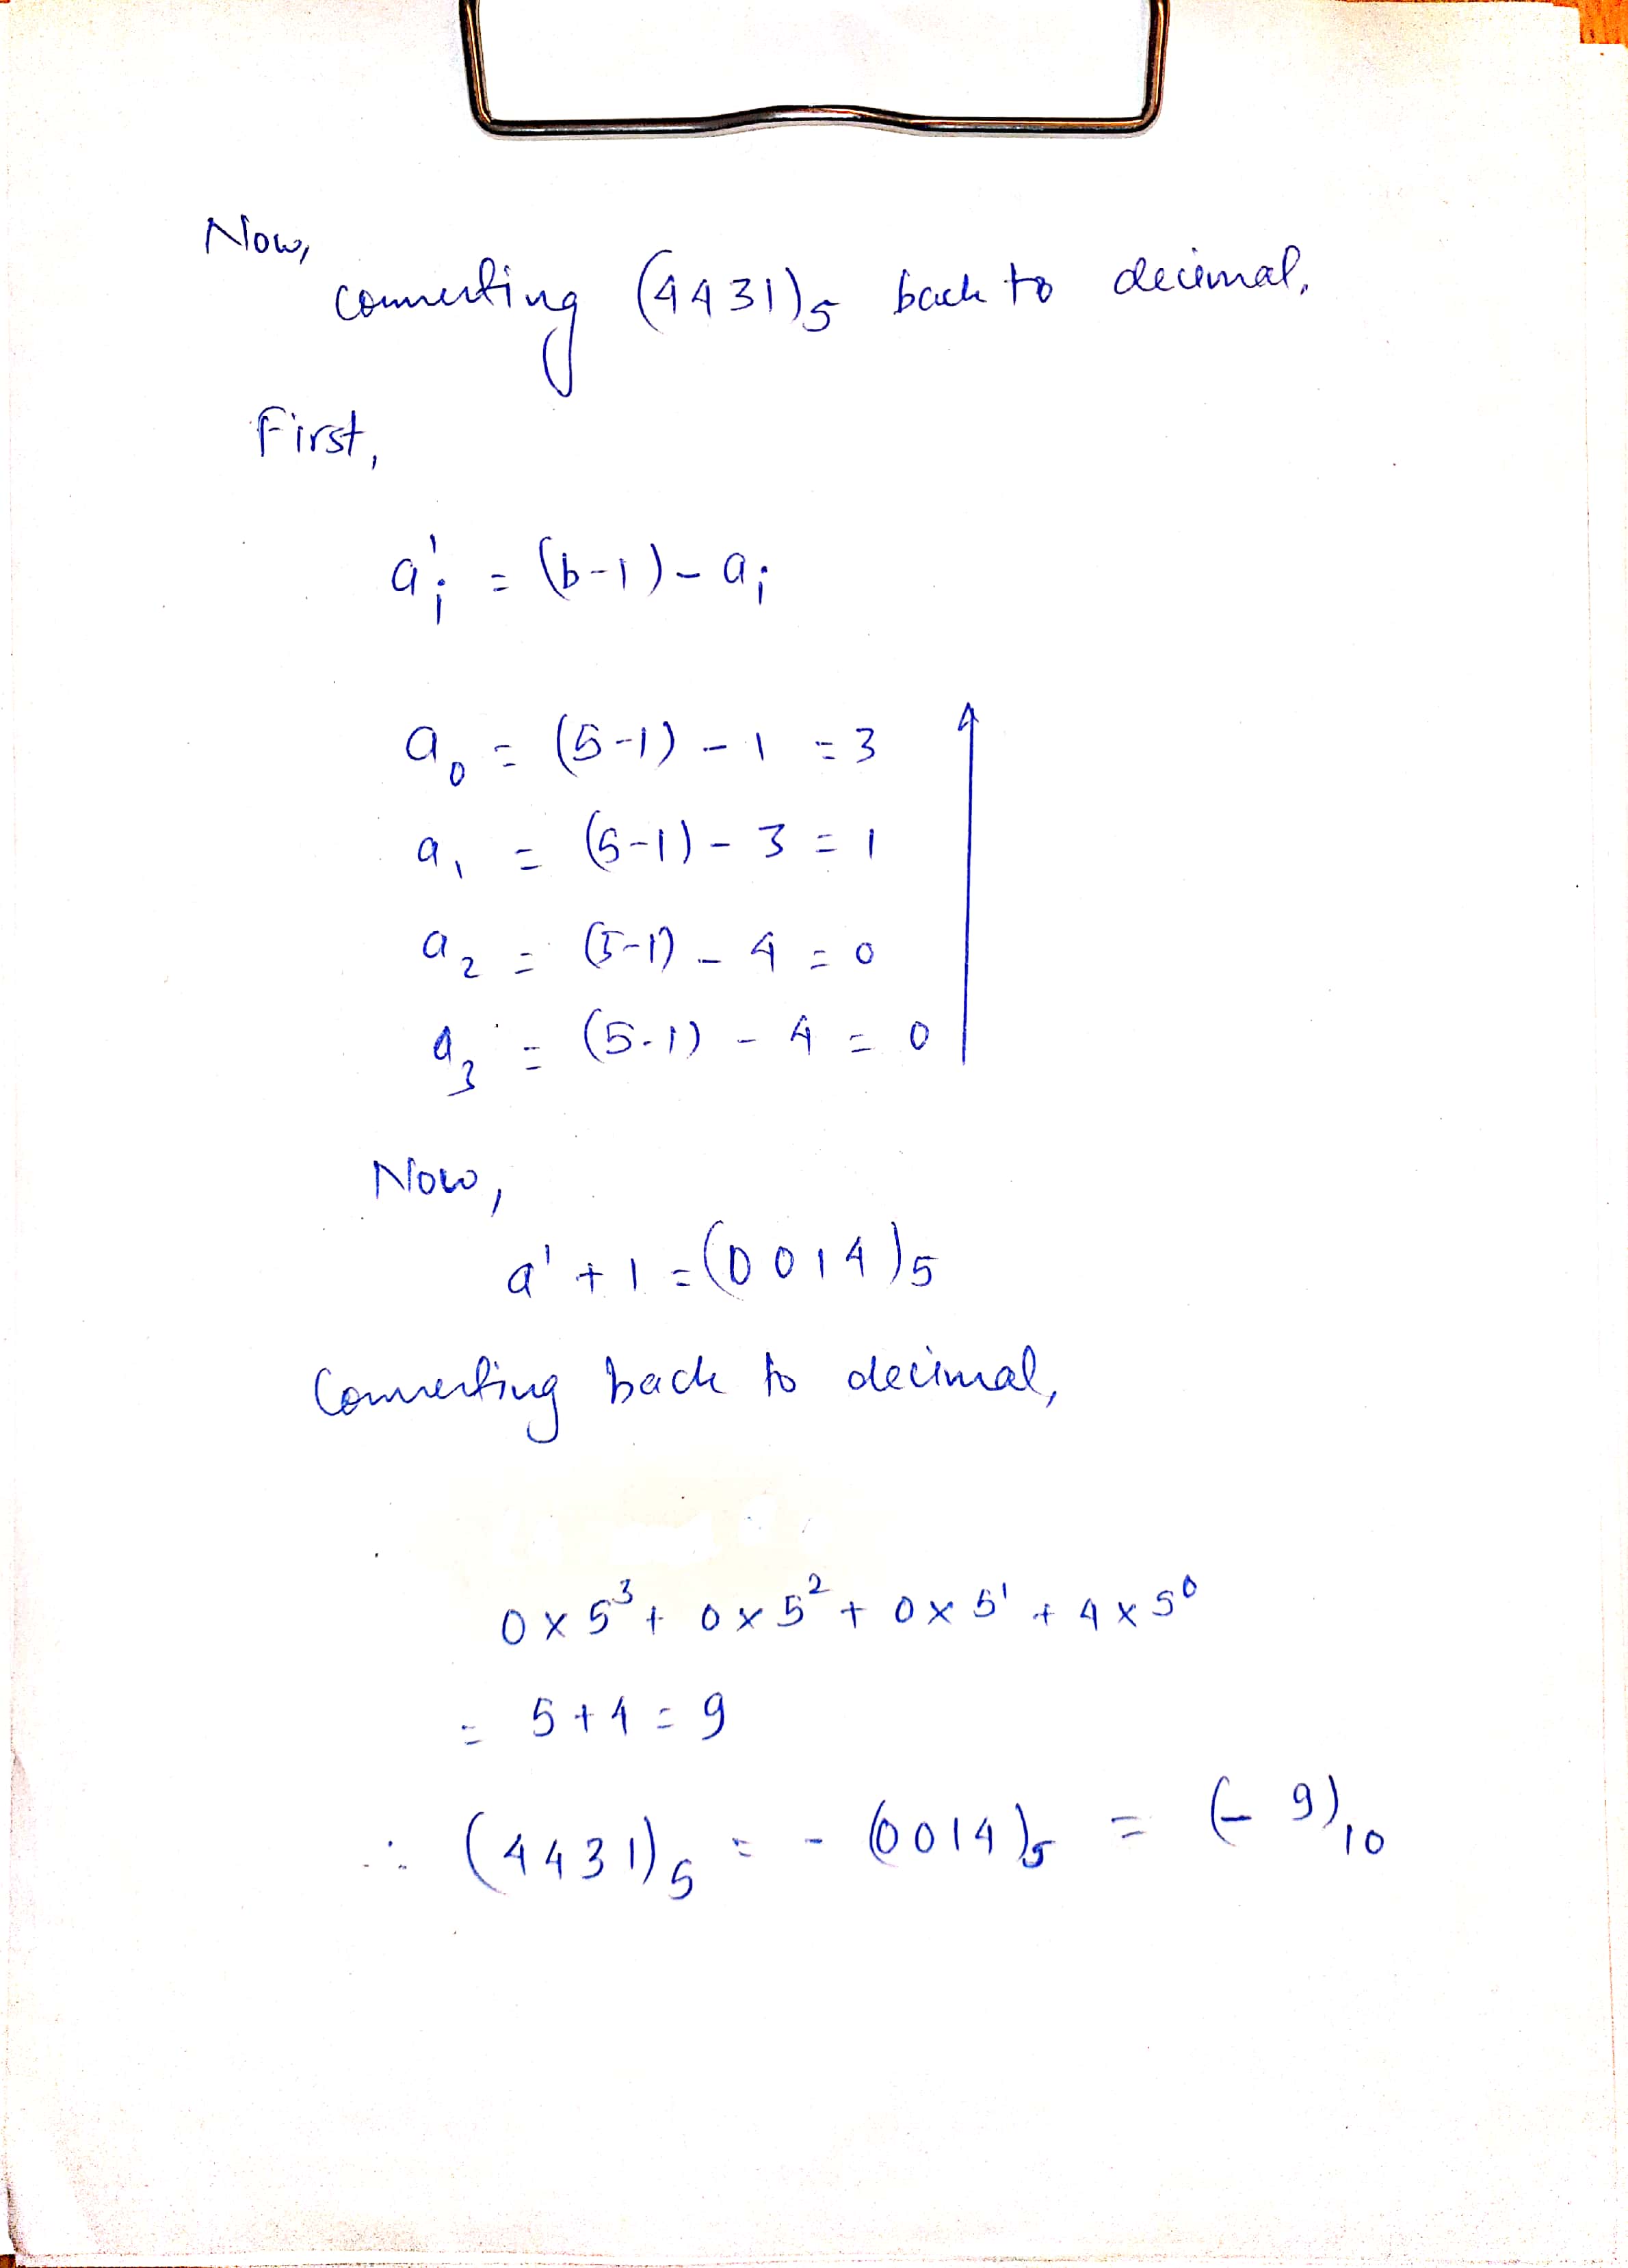 Now,
converting (4431)₅ back to decimal,
First,
a'ᵢ = (b-1) - aᵢ
a₀ = (5-1) - 1 = 3
a₁ = (5-1) - 3 = 1
a₂ = (5-1) - 4 = 0
a₃ = (5-1) - 4 = 0
Now,
a' + 1 = (0014)₅
Converting back to decimal,
0 x 5³ + 0 x 5² + 0 x 5¹ + 4 x 5⁰
= 5 + 4 = 9
∴ (4431)₅ = - (0014)₅ = (- 9)₁₀